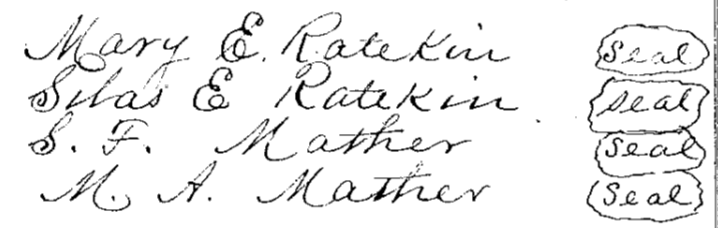 Mary E. Ratekin Seal
Silas E Ratekin Seal
S. F. Mather Seal
M. A. Mather Seal